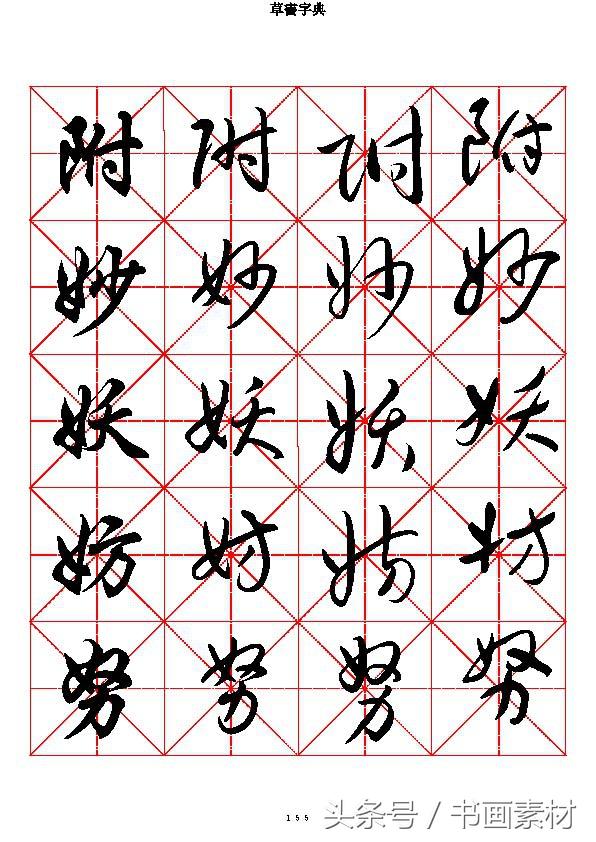 草書字典
附附附附
妙妙妙妙
妖妖妖妖
妨妨妨妨
努努努努
155
头条号 / 书画素材